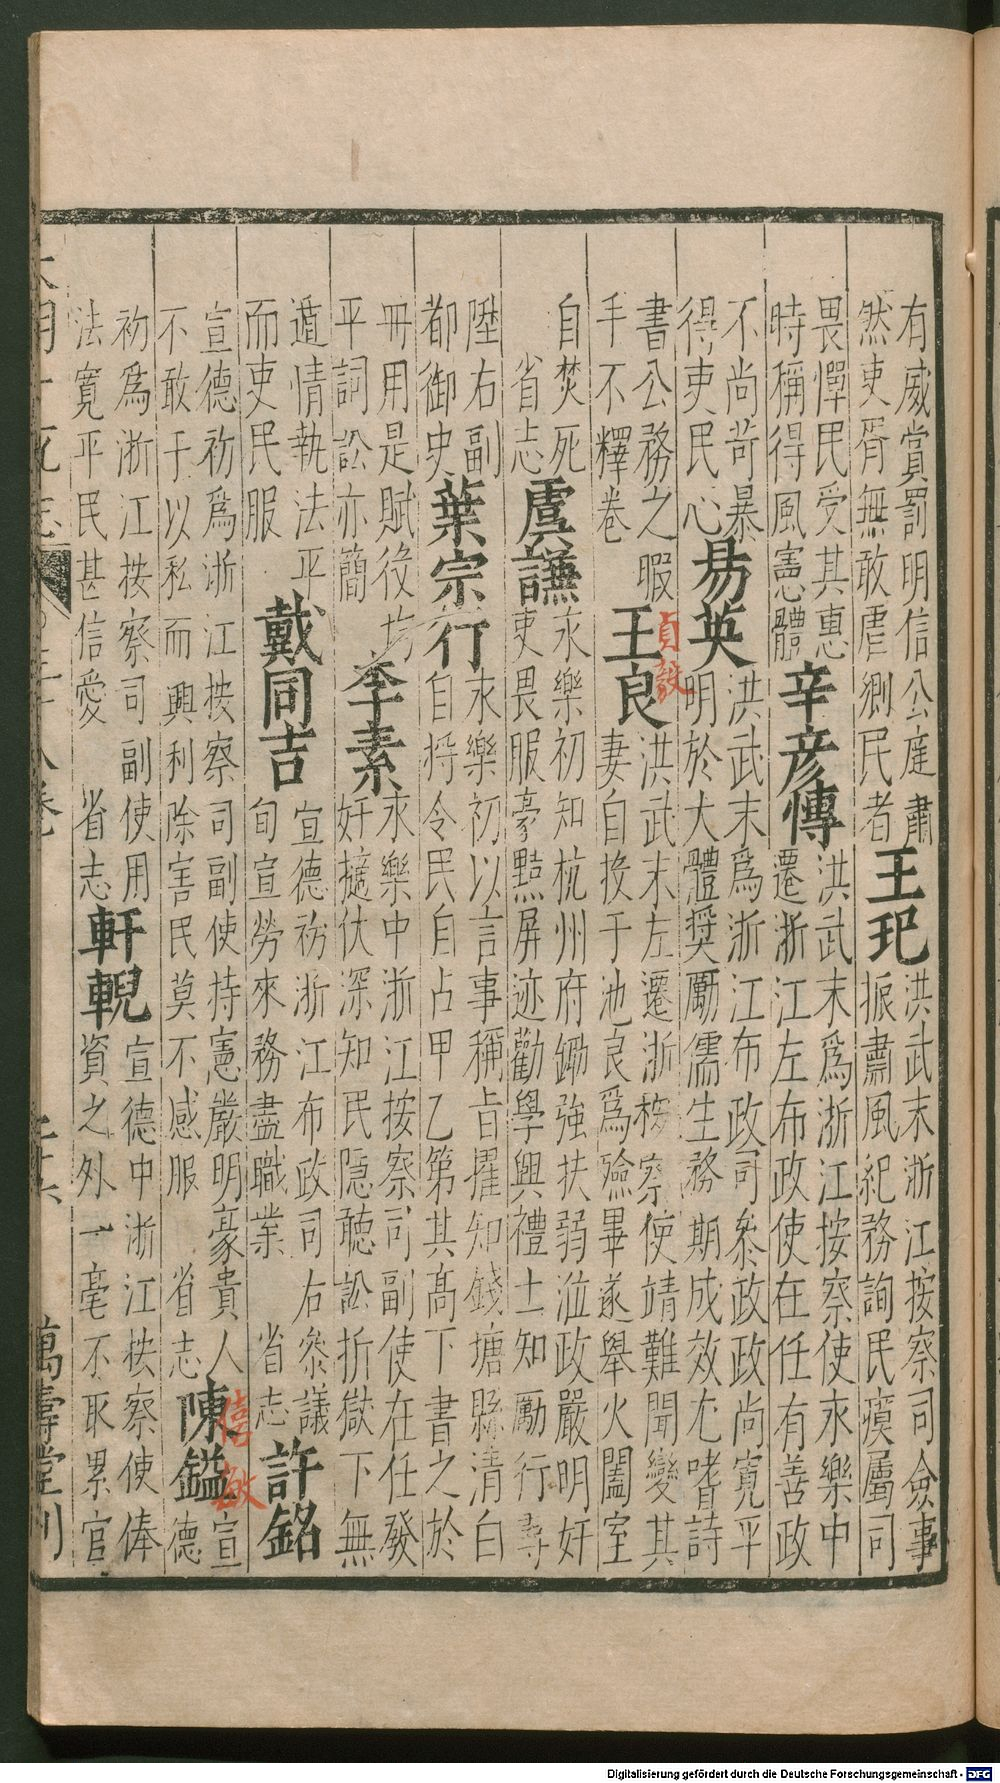 有威賞罰明信公庭肅
然吏胥無敢虐鄉民者
王玘
洪武末浙江按察司僉事
振肅風紀務詢民瘼屬司
畏憚民受其惠
時稱得風憲體
辛彥慱
洪武末為浙江按察使永樂中
遷浙江左布政使在任有善政
不尚苛暴
得吏民心
易英
洪武末為浙江布政司叅政政尚寬平
明於大體奬勵儒生務期成效尤嗜詩
書公務之暇
手不釋卷
王良
貞毅
洪武末左遷浙按察使靖難聞變其
妻自投于池良為殮畢遂舉火闔室
自焚死
省志
虞謙
永樂初知杭州府鋤強扶弱涖政嚴明奸
吏畏服豪黠屏迹勸學興禮士知勵行尋
陞右副
都御史
葉宗行
永樂初以言事稱旨擢知錢塘縣清白
自捋令民自占甲乙第其高下書之於
冊用是賦役均
平詞訟亦簡
李素
永樂中浙江按察司副使在任發
奸擿伏深知民隱聽訟折獄下無
遁情執法平
而吏民服
戴同吉
宣德初浙江布政司右叅議
旬宣勞來務盡職業 省志
許銘
宣德初為浙江按察司副使持憲嚴明豪貴人
不敢于以私而興利除害民莫不感服 省志
陳鎰
僖敏
宣
德
初為浙江按察司副使用
法寬平民甚信愛 省志
軒輗
宣德中浙江按察使俸
資之外一毫不取累官
大明一統志 三十八卷 萬壽堂刊
Digitalisierung gefördert durch die Deutsche Forschungsgemeinschaft - DFG